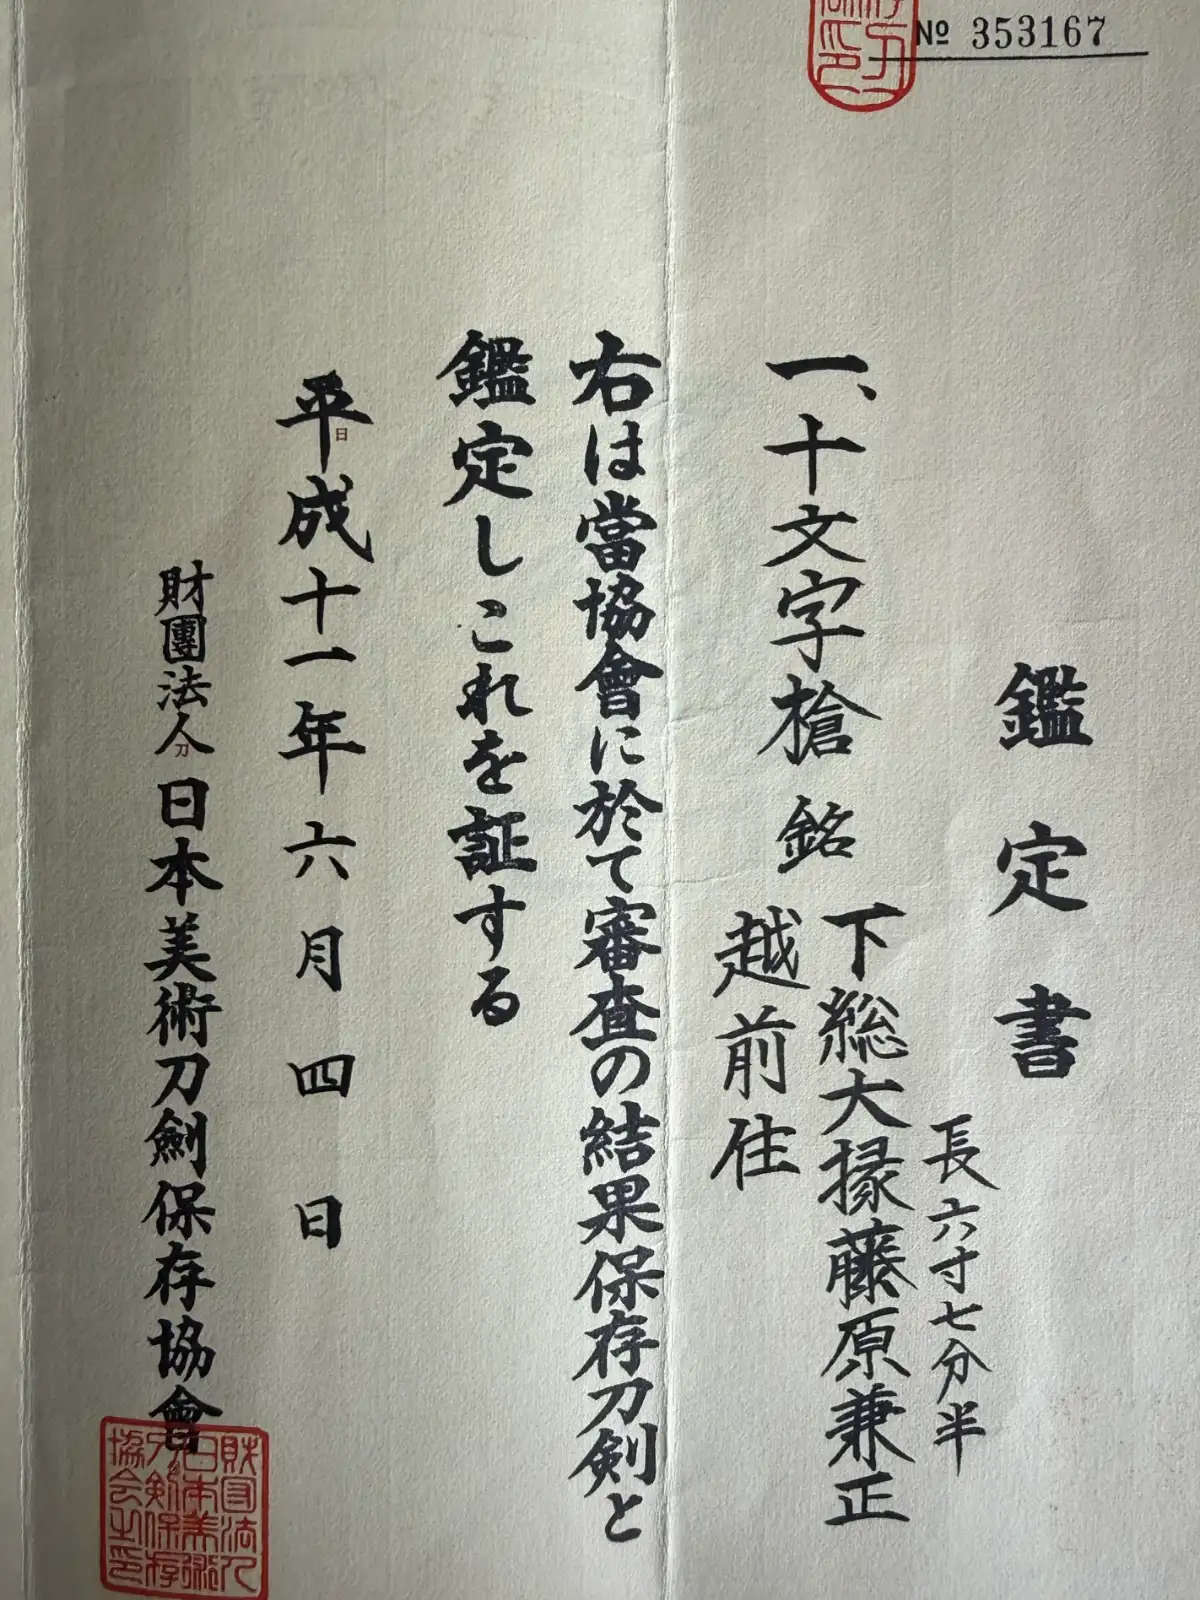 № 353167
鑑定書
長六寸七分半
一、十文字槍 銘
下総大掾藤原兼正
越前住
右は當協會に於て審査の結果保存刀剣と
鑑定しこれを証する
平成十一年六月四日
財團法人日本美術刀劍保存協會
財団法人
日本美術
刀剣保存
協会之印